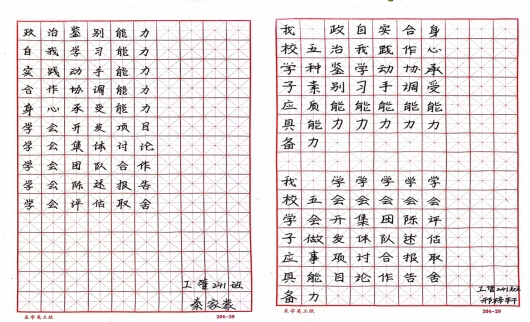 政治鉴别能力
自我学习能力
实践动手能力
合作协调能力
身心承受能力
学会开发项目
学会集体讨论
学会团队合作
学会陈述报告
学会评估取舍
工管241班
秦家
米字美工纸
204-29
我校学子应具备
五种素质能力
政治鉴别能力
自我学习能力
实践动手能力
合作协调能力
身心承受能力
我校学子应具备
五会做事能力
学会开发项目
学会集体讨论
学会团队合作
学会陈述报告
学会评估取舍
工管241班
邢梓轩
米字美工纸
204-29